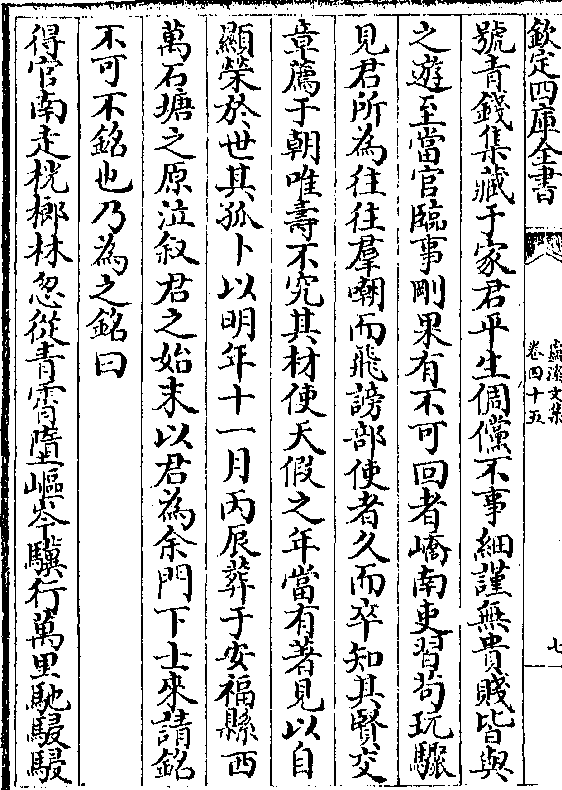 欽定四庫全書
盧溪文集
卷四十五
七
號青錢集藏于家君平生倜儻不事細謹無貴賤皆與
之遊至當官臨事剛果有不可回者嶠南吏習苟玩驟
見君所為往往羣嘲而飛謗部使者久而卒知其賢交
章薦于朝唯壽不究其材使天假之年當有著見以自
顯榮於世其孤卜以明年十一月丙辰葬于安福縣西
萬石塘之原泣叙君之始末以君為余門下士來請銘
不可不銘也乃為之銘曰
得官南走桄榔林忽從青霄墮嶇岑驥行萬里馳駸駸